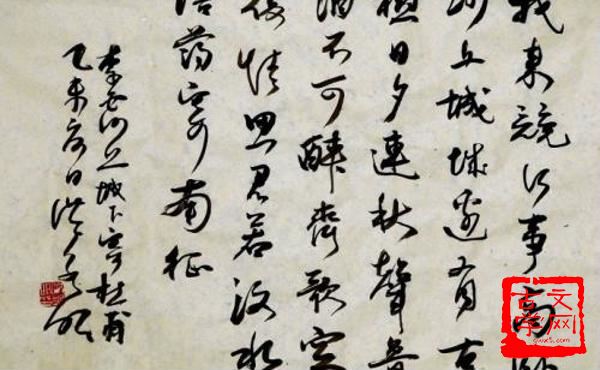 我來競何事高卧
沙丘城城邊有古
樹日夕連秋聲魯
酒不可醉齊歌空
復情思君若汶水
浩蕩寄南征
李白沙丘城下寄杜甫
乙未 日洪
古文
学网